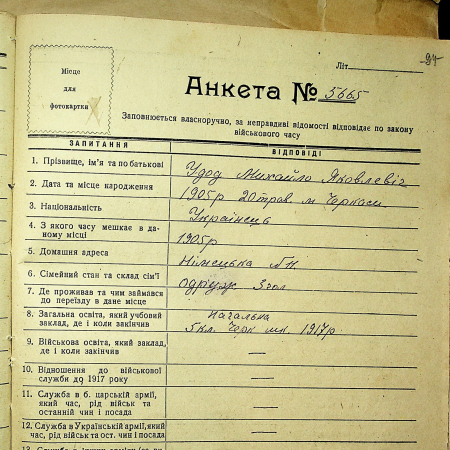 94
Літ.
Місце
для
фотокартки
Анкета № 5665
Заповнюється власноручно, за неправдиві відомості відповідає по закону
військового часу
ЗАПИТАННЯ ВІДПОВІДІ
1. Прізвище, ім'я та по батькові Удод Михайло Яковлевіч
2. Дата та місце народження 1905р 20 трав. м Черкаси
3. Національність Українець
4. З якого часу мешкає в да-
ному місці 1905р
5. Домашня адреса Німецька
6. Сімейний стан та склад сім'ї одруж 3 
7. Де проживав та чим займався
до переїзду в дане місце
8. Загальна освіта, який учбовий Начальна
заклад, де і коли закінчив 5 кл. Черк шк. 1917р
9. Військова освіта, який заклад,
де і коли закінчив —
10. Відношення до військової
служби до 1917 року —
11. Служба в б. царській армії,
який час, рід військ та
останній чин і посада —
12. Служба в Українській армії, який
час, рід військ та ост. чин і посада —